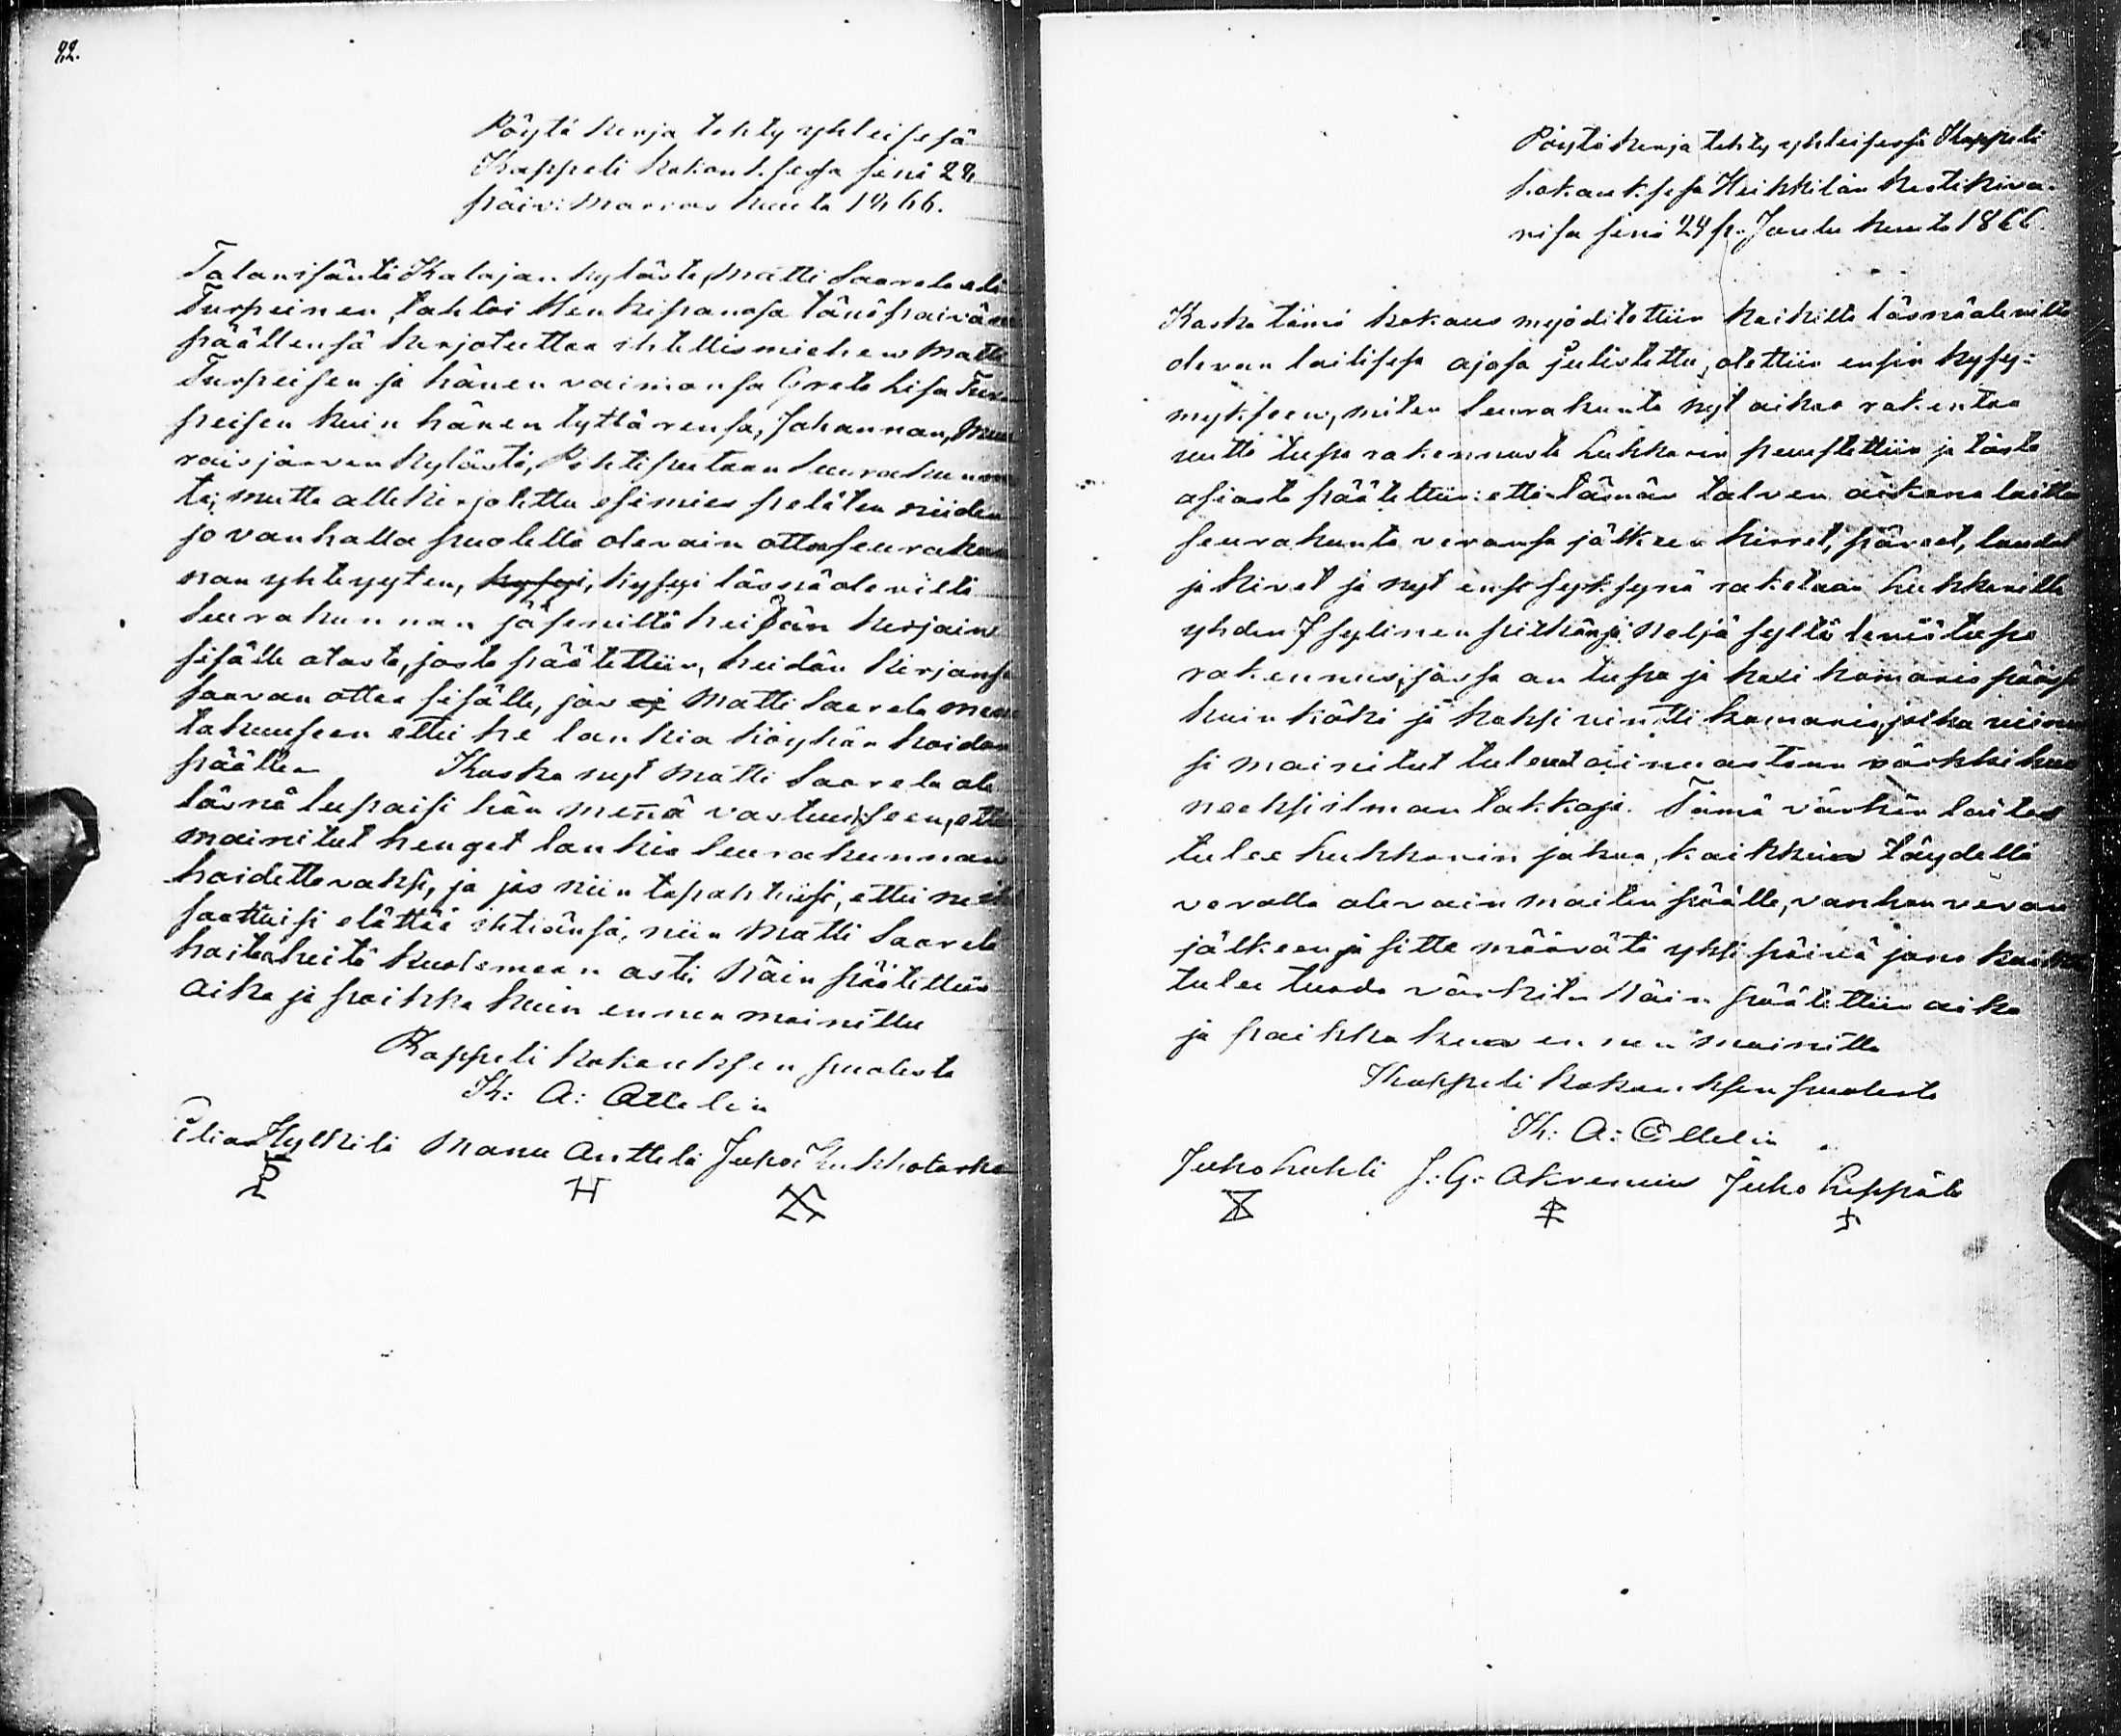 22.
Pöytä kirja tehty yhteisesä
Kappeli kokouksessa sinä 28
päiv: Marras kuuta 1866.
Talonisäntä Kalajan kylästä, Matti Saarela eli
Turpeinen, tahtoi Henkipanosa tänäpaivänä
päällensä kirjotuttaa ihtellismiehen Matti
Turpeisen ja hänen vaimonsa Greta Lisa Tur
peisen kuin hänen tyttärensa, Johannan, Muu
raisjärven kylästä, Pihtiputaan Seurakunnas
ta; mutta allekirjotettu esimies peläten niiden
jo vanhalla puolella olevain ottaa seurakun
nan yhteyyten, kysyi, kysyi läsnäolevilta
Seurakunnan jäseniltä heidän kirjain
sisälle otosta, josta päätettiin, heidän kirjansa
saavan ottaa sisälle, jos ej Matti Saarela mene
takuuseen ettei he lankia köyhän hoidon
päälle. Koska nyt Matti Saarela oli
läsnä lupaisi hän mennä vastuuseen, että
mainitut henget lankia Seurakunnan
hoidettavaksi, ja jos niin tapahtuisi, ettei ne itse
saattaisi elättää ihtiänsä, niin Matti Saarela
hoitaa heitä kuolemaan asti. Näin päätettiin
aika ja paikka kuin ennen mainittu
Kappeli kokouksen puolesta
K: A: Ellelin
Elias Hylkilä Manu Anttela Juho Kukkotarka
Pöytä kirja tehty yhteisessä Kappeli
kokouksesa Heikkilän kestikieva-
risa sinä 24 p. Joulu kuuta 1866.
Koska tämä kokous myöditettiin kaikilta läsnäolevilta
olevan laillisesa ajosa julistettu, otettiin ensin kysy-
mykseen, miten Seurakunta nyt aikoo rakentaa
uutta tupa rakennusta Lukkarin puustettiin ja tästä
asiasta päätettiin: että tämän talven aikana laittaa
seurakunta veronsa jälkeen hirret, päreet, laudat
ja kivet ja nyt ensi syksynä raketaan Lukkarille
yhden 7 sylinen pitkänjä neljä syltä leviä tupa
rakennus, josa on tupa ja kaxi kamaria pääsä
kuin köki ja kaksi vintti kamaria, jotka viime
si mainitut tulevat ainoastaan värkki huo
neeksi ilman takkoja. Tämä värkin laitos
tulee Lukkarin jakaa, kaikkein täydellä
verolla olevain maiten päälle, vanhan veron
jälkeen ja sitte määrätä yksi päivä jona kaikki
tulee tuoda värkitn Näin päätettiin aika
ja paikka kuin ennen mainittu
Kappeli kokouksen puolesta
K: A: Ellelin
Juho Lehti J: G: Akrenius Juho Leppälä